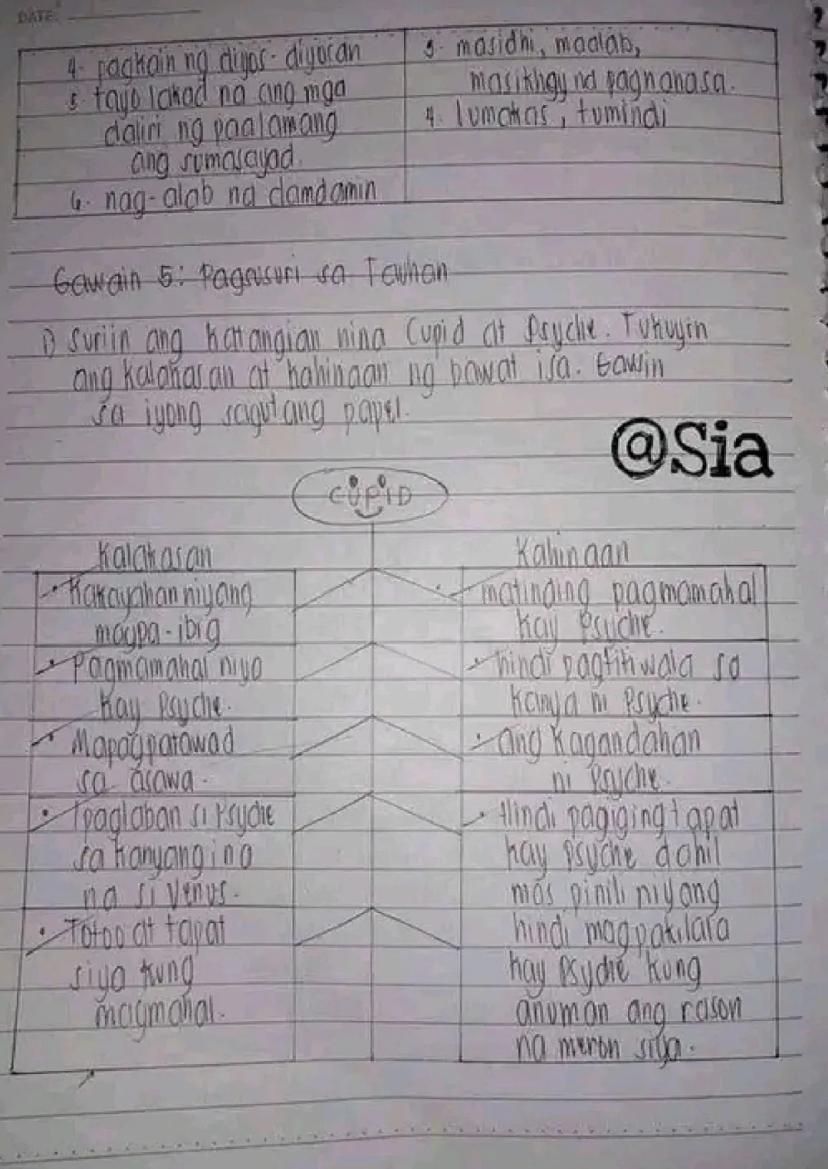 DATE:
4. pagkain ng diyos-diyosan
5. tayo lakad na ang mga
daliri ng paalamang
ang sumasayad.
6. nag-alab na damdamin
3. masidhi, maalab,
masikhay na pagnanasa.
4. lumakas, tumindi
Gawain 5: Pagsusuri sa Tauhan
1) Suriin ang katangian nina Cupid at Psyche. Tukuyin
ang kalakasan at kahinaan ng bawat isa. Gawin
sa iyong sagutang papel.
@Sia
CUPID
Kalakasan
• Kakayahan niyang
magpa-ibig
• Pagmamahal niya
kay Psyche.
• Mapagpatawad
sa asawa.
• Ipaglaban si Psyche
sa kanyang ina
na si Venus.
• Totoo at tapat
siya kung
magmahal.
Kahinaan
• matinding pagmamahal
kay Psyche.
• hindi pagtitiwala sa
kanya ni Psyche.
• ang kagandahan
ni Psyche.
• Hindi pagiging tapat
kay Psyche dahil
mas pinili niyang
hindi magpakilala
kay Psyche kung
anuman ang rason
na meron siya.